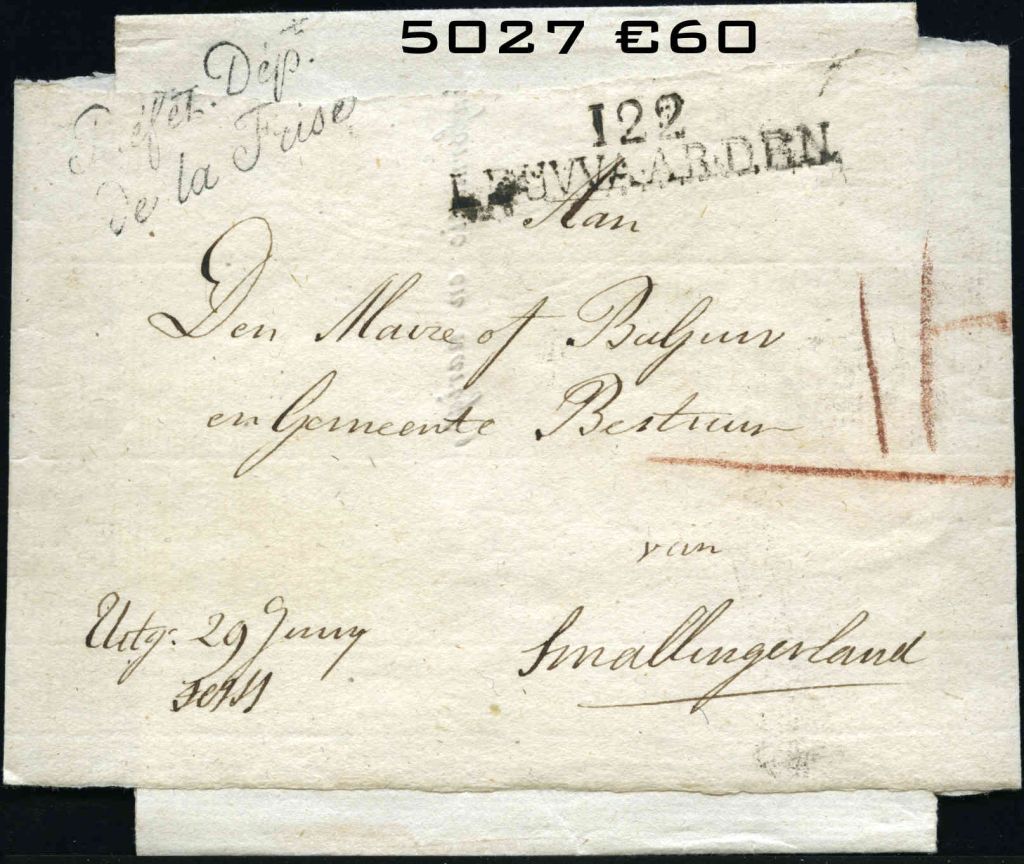 5027 €60
Préfet. Dépt.
de la Frise
122
LEEUWAARDEN
Aan
Den Maire of
en Gemeente Bestuur
van
Smallingerland
Uitg. 29 Juny